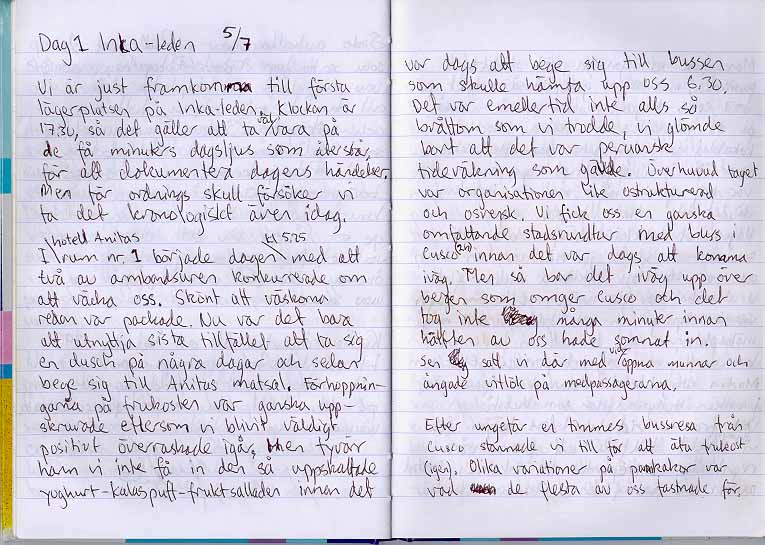 Dag 1 Inka-leden 5/7
Vi är just framkomna till första
lägerplatsen på Inka-leden. Klockan är
17.30, så det gäller att ta väl vara på
de få minuters dagsljus som återstår,
för att dokumentera dagens händelser.
Men för ordnings skull försöker vi
ta det kronologiskt även idag.
I hotell Anitas rum nr. 1 började dagen kl 5.25 med att
två av armbandsuren konkurrerade om
att väcka oss. Skönt att väskorna
redan var packade. Nu var det bara
att utnyttja sista tillfället att ta sig
en dusch på några dagar och sedan
bege sig till Anitas matsal. Förhoppnin-
garna på frukosten var ganska upp-
skruvade eftersom vi blivit väldigt
positivt överraskade igår, men tyvärr
hann vi inte få in den så uppskattade
yoghurt-kalaspuff-fruktsalladen innan det
var dags att bege sig till bussen
som skulle hämta upp oss 6.30.
Det var emellertid inte alls så
bråttom som vi trodde, vi glömde
bort att det var peruansk
tideräkning som gällde. Överhuvud taget
var organisationen lite ostrukturerad
och osvensk. Vi fick oss en ganska
omfattande stadsrundtur med buss i
Cusco (2h) innan det var dags att komma
iväg. Men så bar det iväg upp över
bergen som omger Cusco och det
tog inte många minuter innan
hälften av oss hade somnat in.
Sen satt vi där med vidöppna munnar och
ångade vitlök på medpassagerarna.
Efter ungefär en timmes bussresa från
Cusco stannade vi till för att äta frukost
(igen). Olika variationer på pannkakor var
vad de flesta av oss fastnade för.